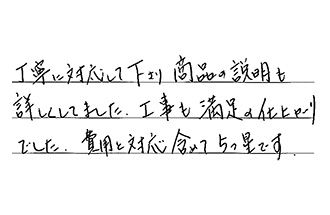 丁寧に対応して下さり 商品の説明も
詳しくしてました. 工事も 満足の仕上がり
でした. 費用と対応 含めて 5つ星です.